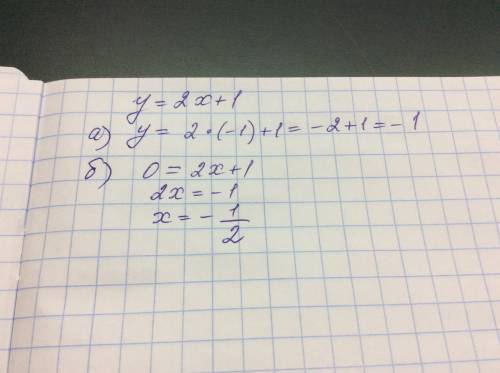 y = 2x+1
а) y = 2·(-1)+1 = -2+1 = -1
б) 0 = 2x+1
2x = -1
x = - 1/2